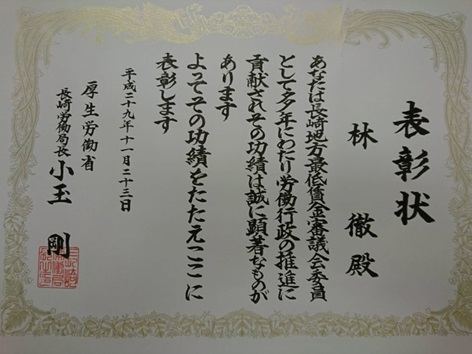 表彰状
林 徹殿
あなたは長崎地方最低賃金審議会委員
として多年にわたり労働行政の推進に
貢献されその功績は誠に顕著なものが
あります
よってその功績をたたえここに
表彰します
平成二十九年十一月二十三日
厚生労働省
長崎労働局長 小玉 剛